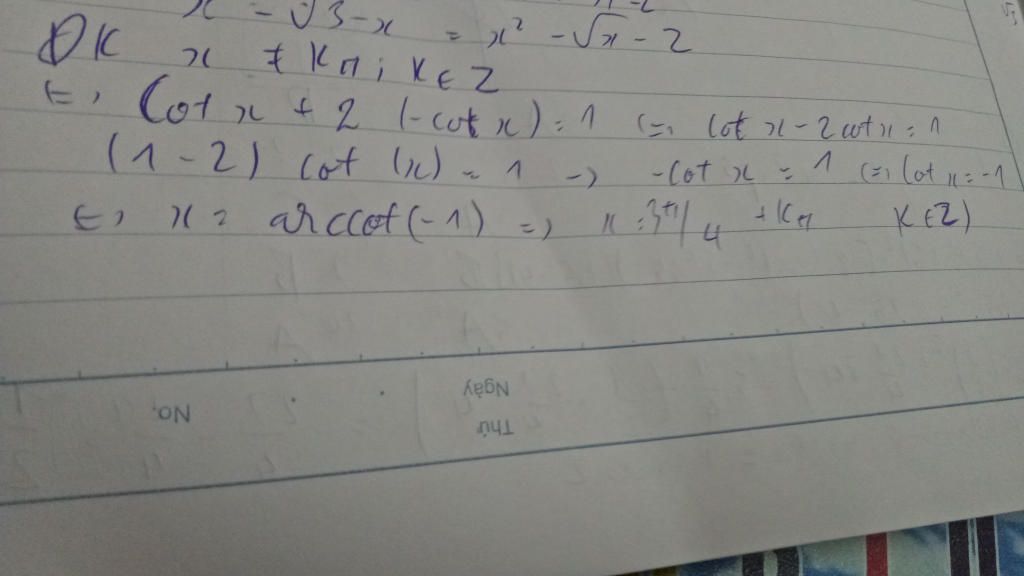 x - √3-x = x² - √x - 2
ĐK x ≠ kπ; k ∈ Z
⇔ Cot x + 2 (-cot x) = 1 ⇔ cot x - 2cot x = 1
(1 - 2) cot (x) = 1 → -cot x = 1 ⇔ Cot x = -1
⇔ x = arccot(-1) ⇒ x = 3π/4 + kπ k ∈ Z)
Ngày
No.
Thứ